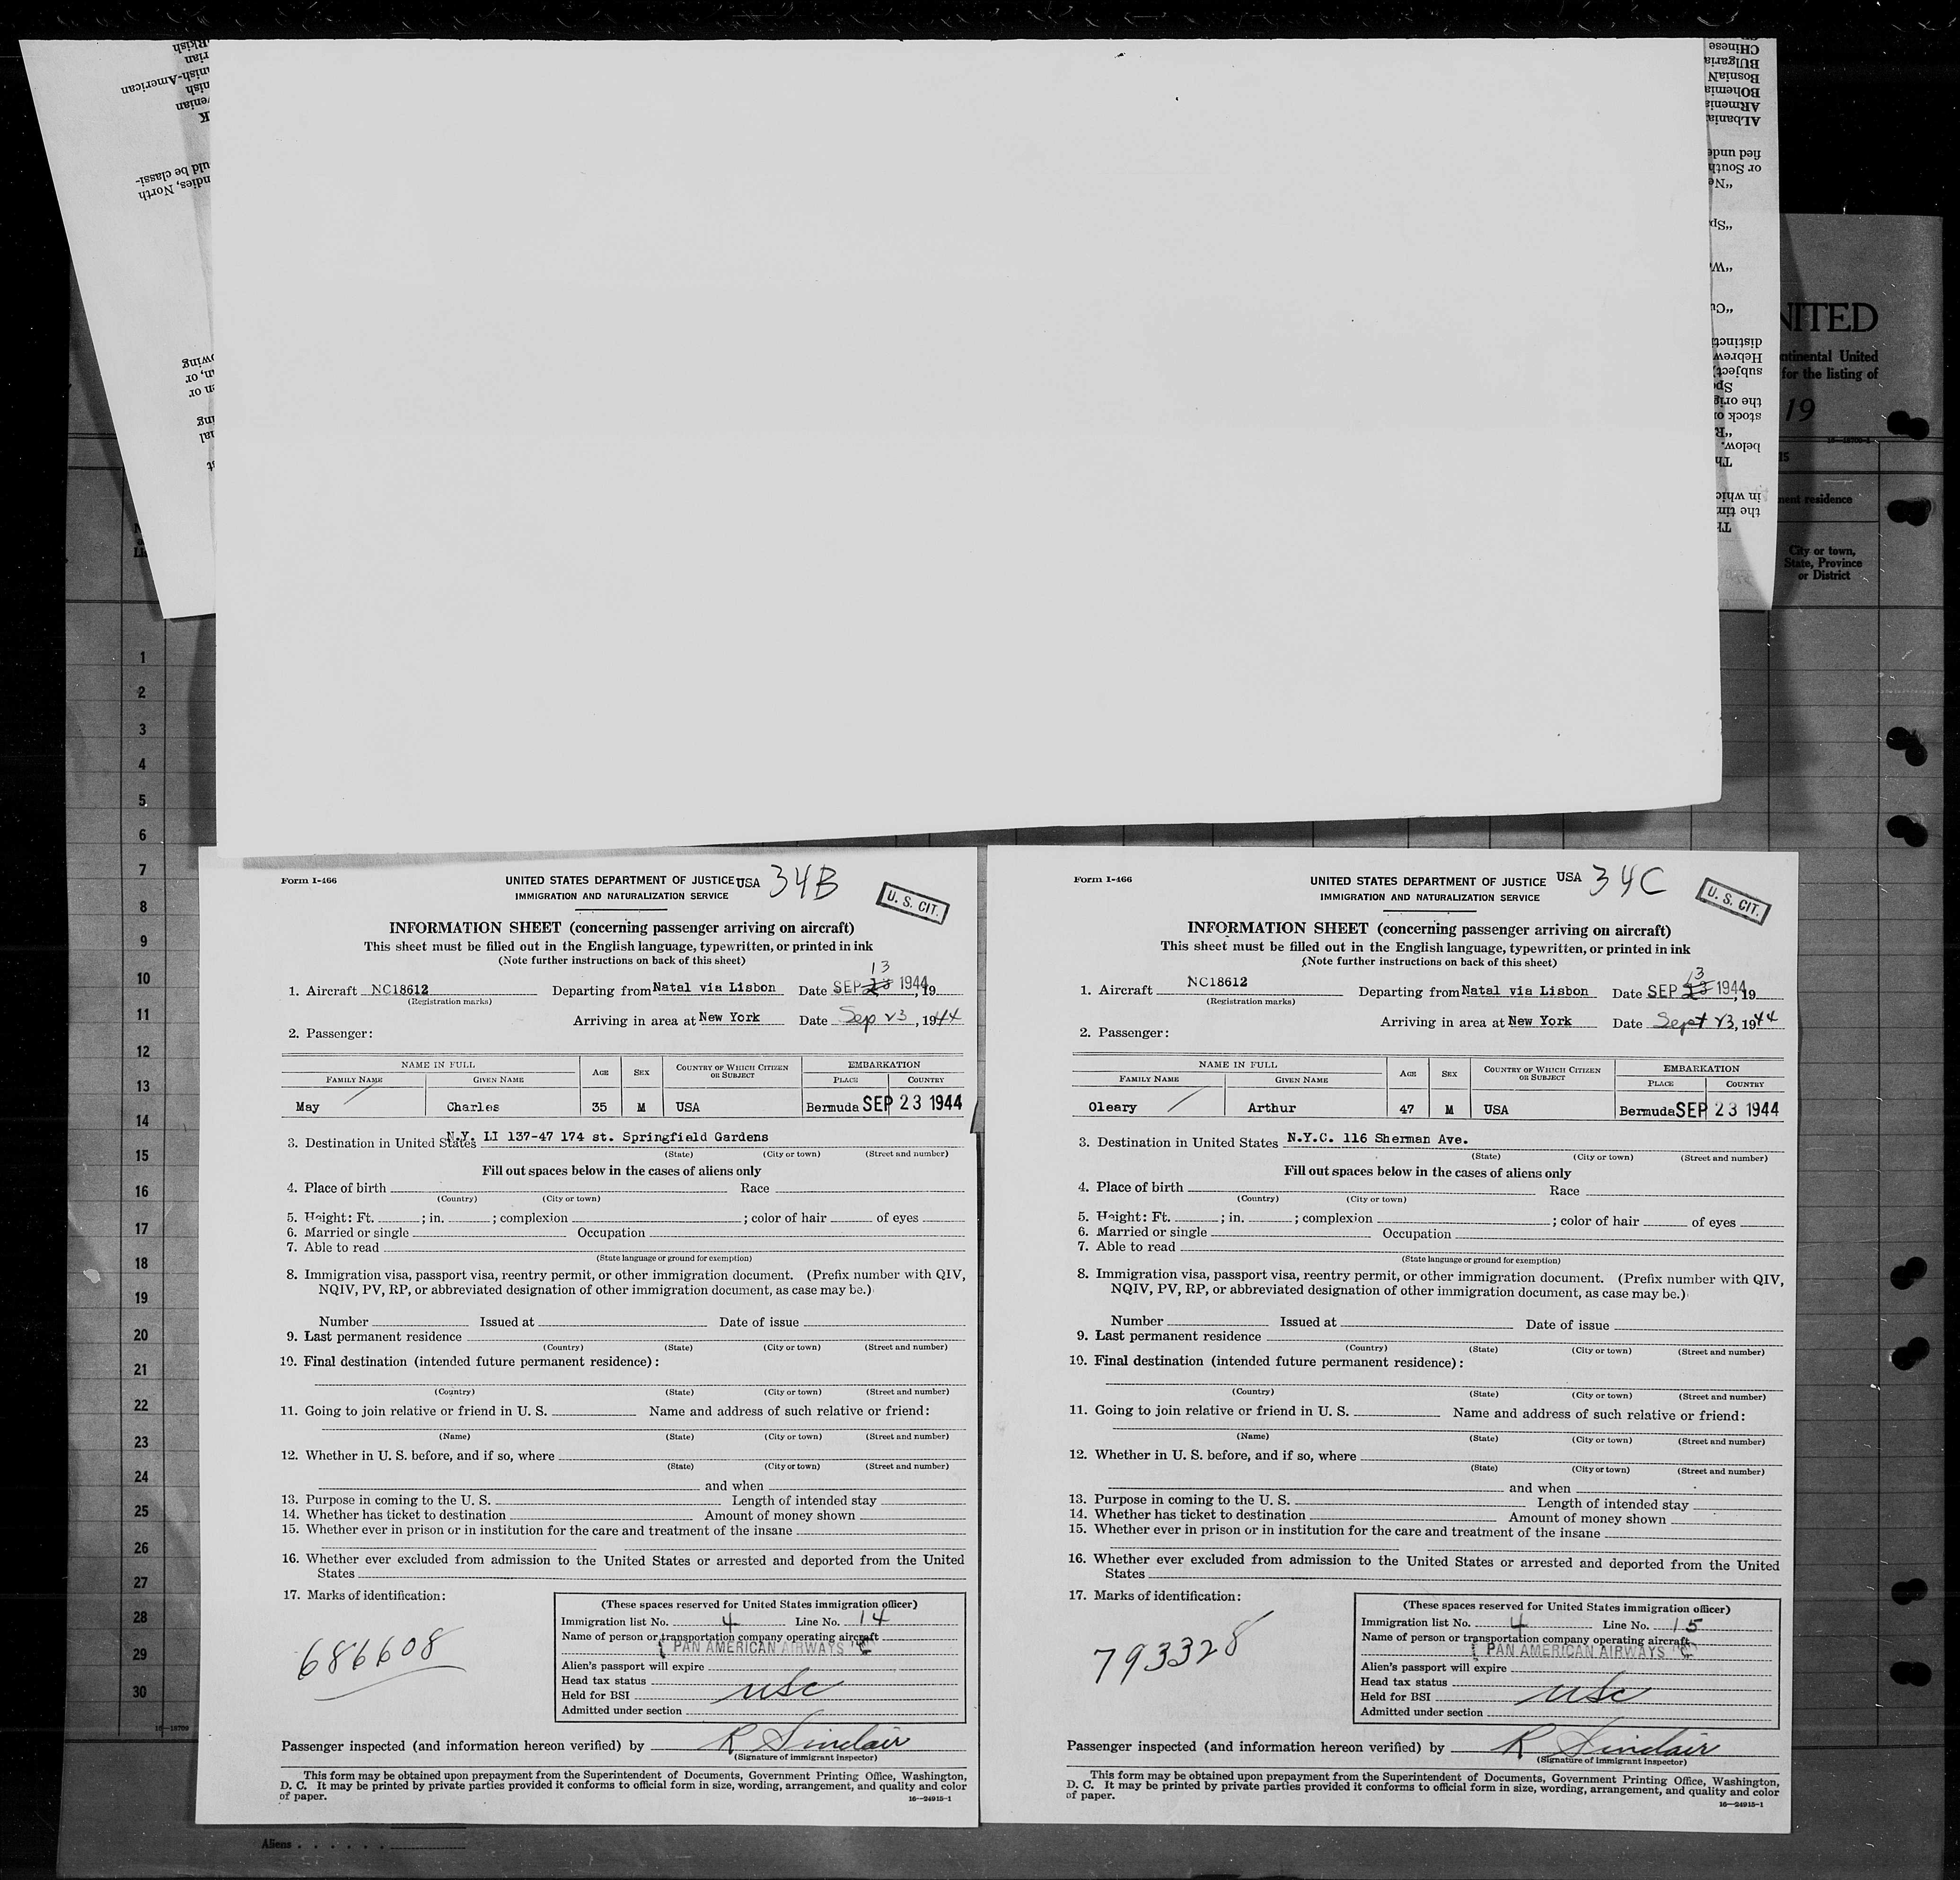 NITED
ntinental United
for the listing of
19
15
nent residence
City or town,
State, Province
or District
CHinese
BUlgaria
BosniaN
BOhemia
ARmenia
ALbania
fied unde
or South
"Ne
"Sp
"W
"Cu
distinct
Hebrew
subject)
Spe
the orig
stock or
"R
below.
Th
in whic
the tim
Th
nish-American
nish
venian
K
uld be classi-
ndies, North
owing
n, or
en or
ing
nal
st
1
2
3
4
5
6
7
8
9
10
11
12
13
14
15
16
17
18
19
20
21
22
23
24
25
26
27
28
29
30
16—18709
Aliens . . . . . .
Form I-466
UNITED STATES DEPARTMENT OF JUSTICE USA 34B
IMMIGRATION AND NATURALIZATION SERVICE
U. S. CIT.
INFORMATION SHEET (concerning passenger arriving on aircraft)
This sheet must be filled out in the English language, typewritten, or printed in ink
(Note further instructions on back of this sheet)
13
1. Aircraft NC18612 Departing from Natal via Lisbon Date SEP 23 1944, 19
(Registration marks)
Arriving in area at New York Date Sep 23, 1944
2. Passenger:
NAME IN FULL AGE SEX COUNTRY OF WHICH CITIZEN OR SUBJECT EMBARKATION
FAMILY NAME GIVEN NAME PLACE COUNTRY
May Charles 35 M USA Bermuda SEP 23 1944
3. Destination in United States N.Y. LI 137-47 174 st. Springfield Gardens
(State) (City or town) (Street and number)
Fill out spaces below in the cases of aliens only
4. Place of birth Race
(Country) (City or town)
5. Height: Ft. ; in. ; complexion ; color of hair of eyes
6. Married or single Occupation
7. Able to read
(State language or ground for exemption)
8. Immigration visa, passport visa, reentry permit, or other immigration document. (Prefix number with QIV,
NQIV, PV, RP, or abbreviated designation of other immigration document, as case may be.)
Number Issued at Date of issue
9. Last permanent residence
(Country) (State) (City or town) (Street and number)
10. Final destination (intended future permanent residence):
(Country) (State) (City or town) (Street and number)
11. Going to join relative or friend in U. S. Name and address of such relative or friend:
(Name) (State) (City or town) (Street and number)
12. Whether in U. S. before, and if so, where
(State) (City or town) (Street and number)
and when
13. Purpose in coming to the U. S. Length of intended stay
14. Whether has ticket to destination Amount of money shown
15. Whether ever in prison or in institution for the care and treatment of the insane
16. Whether ever excluded from admission to the United States or arrested and deported from the United
States
17. Marks of identification:
686608
(These spaces reserved for United States immigration officer)
Immigration list No. 4 Line No. 14
Name of person or transportation company operating aircraft
PAN AMERICAN AIRWAYS
Alien's passport will expire
Head tax status
Held for BSI USC
Admitted under section
Passenger inspected (and information hereon verified) by R Sinclair
(Signature of immigrant inspector)
This form may be obtained upon prepayment from the Superintendent of Documents, Government Printing Office, Washington,
D. C. It may be printed by private parties provided it conforms to official form in size, wording, arrangement, and quality and color
of paper.
16—24915-1
Form I-466
UNITED STATES DEPARTMENT OF JUSTICE USA 34C
IMMIGRATION AND NATURALIZATION SERVICE
U. S. CIT.
INFORMATION SHEET (concerning passenger arriving on aircraft)
This sheet must be filled out in the English language, typewritten, or printed in ink
(Note further instructions on back of this sheet)
13
1. Aircraft NC18612 Departing from Natal via Lisbon Date SEP 23 1944, 19
(Registration marks)
Arriving in area at New York Date Sept 23, 1944
2. Passenger:
NAME IN FULL AGE SEX COUNTRY OF WHICH CITIZEN OR SUBJECT EMBARKATION
FAMILY NAME GIVEN NAME PLACE COUNTRY
Oleary Arthur 47 M USA Bermuda SEP 23 1944
3. Destination in United States N.Y.C. 116 Sherman Ave.
(State) (City or town) (Street and number)
Fill out spaces below in the cases of aliens only
4. Place of birth Race
(Country) (City or town)
5. Height: Ft. ; in. ; complexion ; color of hair of eyes
6. Married or single Occupation
7. Able to read
(State language or ground for exemption)
8. Immigration visa, passport visa, reentry permit, or other immigration document. (Prefix number with QIV,
NQIV, PV, RP, or abbreviated designation of other immigration document, as case may be.)
Number Issued at Date of issue
9. Last permanent residence
(Country) (State) (City or town) (Street and number)
10. Final destination (intended future permanent residence):
(Country) (State) (City or town) (Street and number)
11. Going to join relative or friend in U. S. Name and address of such relative or friend:
(Name) (State) (City or town) (Street and number)
12. Whether in U. S. before, and if so, where
(State) (City or town) (Street and number)
and when
13. Purpose in coming to the U. S. Length of intended stay
14. Whether has ticket to destination Amount of money shown
15. Whether ever in prison or in institution for the care and treatment of the insane
16. Whether ever excluded from admission to the United States or arrested and deported from the United
States
17. Marks of identification:
793328
(These spaces reserved for United States immigration officer)
Immigration list No. 4 Line No. 15
Name of person or transportation company operating aircraft
PAN AMERICAN AIRWAYS
Alien's passport will expire
Head tax status
Held for BSI USC
Admitted under section
Passenger inspected (and information hereon verified) by R Sinclair
(Signature of immigrant inspector)
This form may be obtained upon prepayment from the Superintendent of Documents, Government Printing Office, Washington,
D. C. It may be printed by private parties provided it conforms to official form in size, wording, arrangement, and quality and color
of paper.
16—24915-1